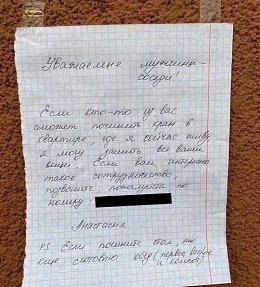 Уважаемые мужчины-
соседи!
Если кто-то из вас
сможет починить кран в
квартире, где я сейчас живу
я могу зашить все ваши
вещи! Если вам интересно
такое сотрудничество,
позвоните, пожалуйста по
номеру
Анастасия
P.S Если почините стол, то
еще сготовлю обед (первое, второе
и компот)